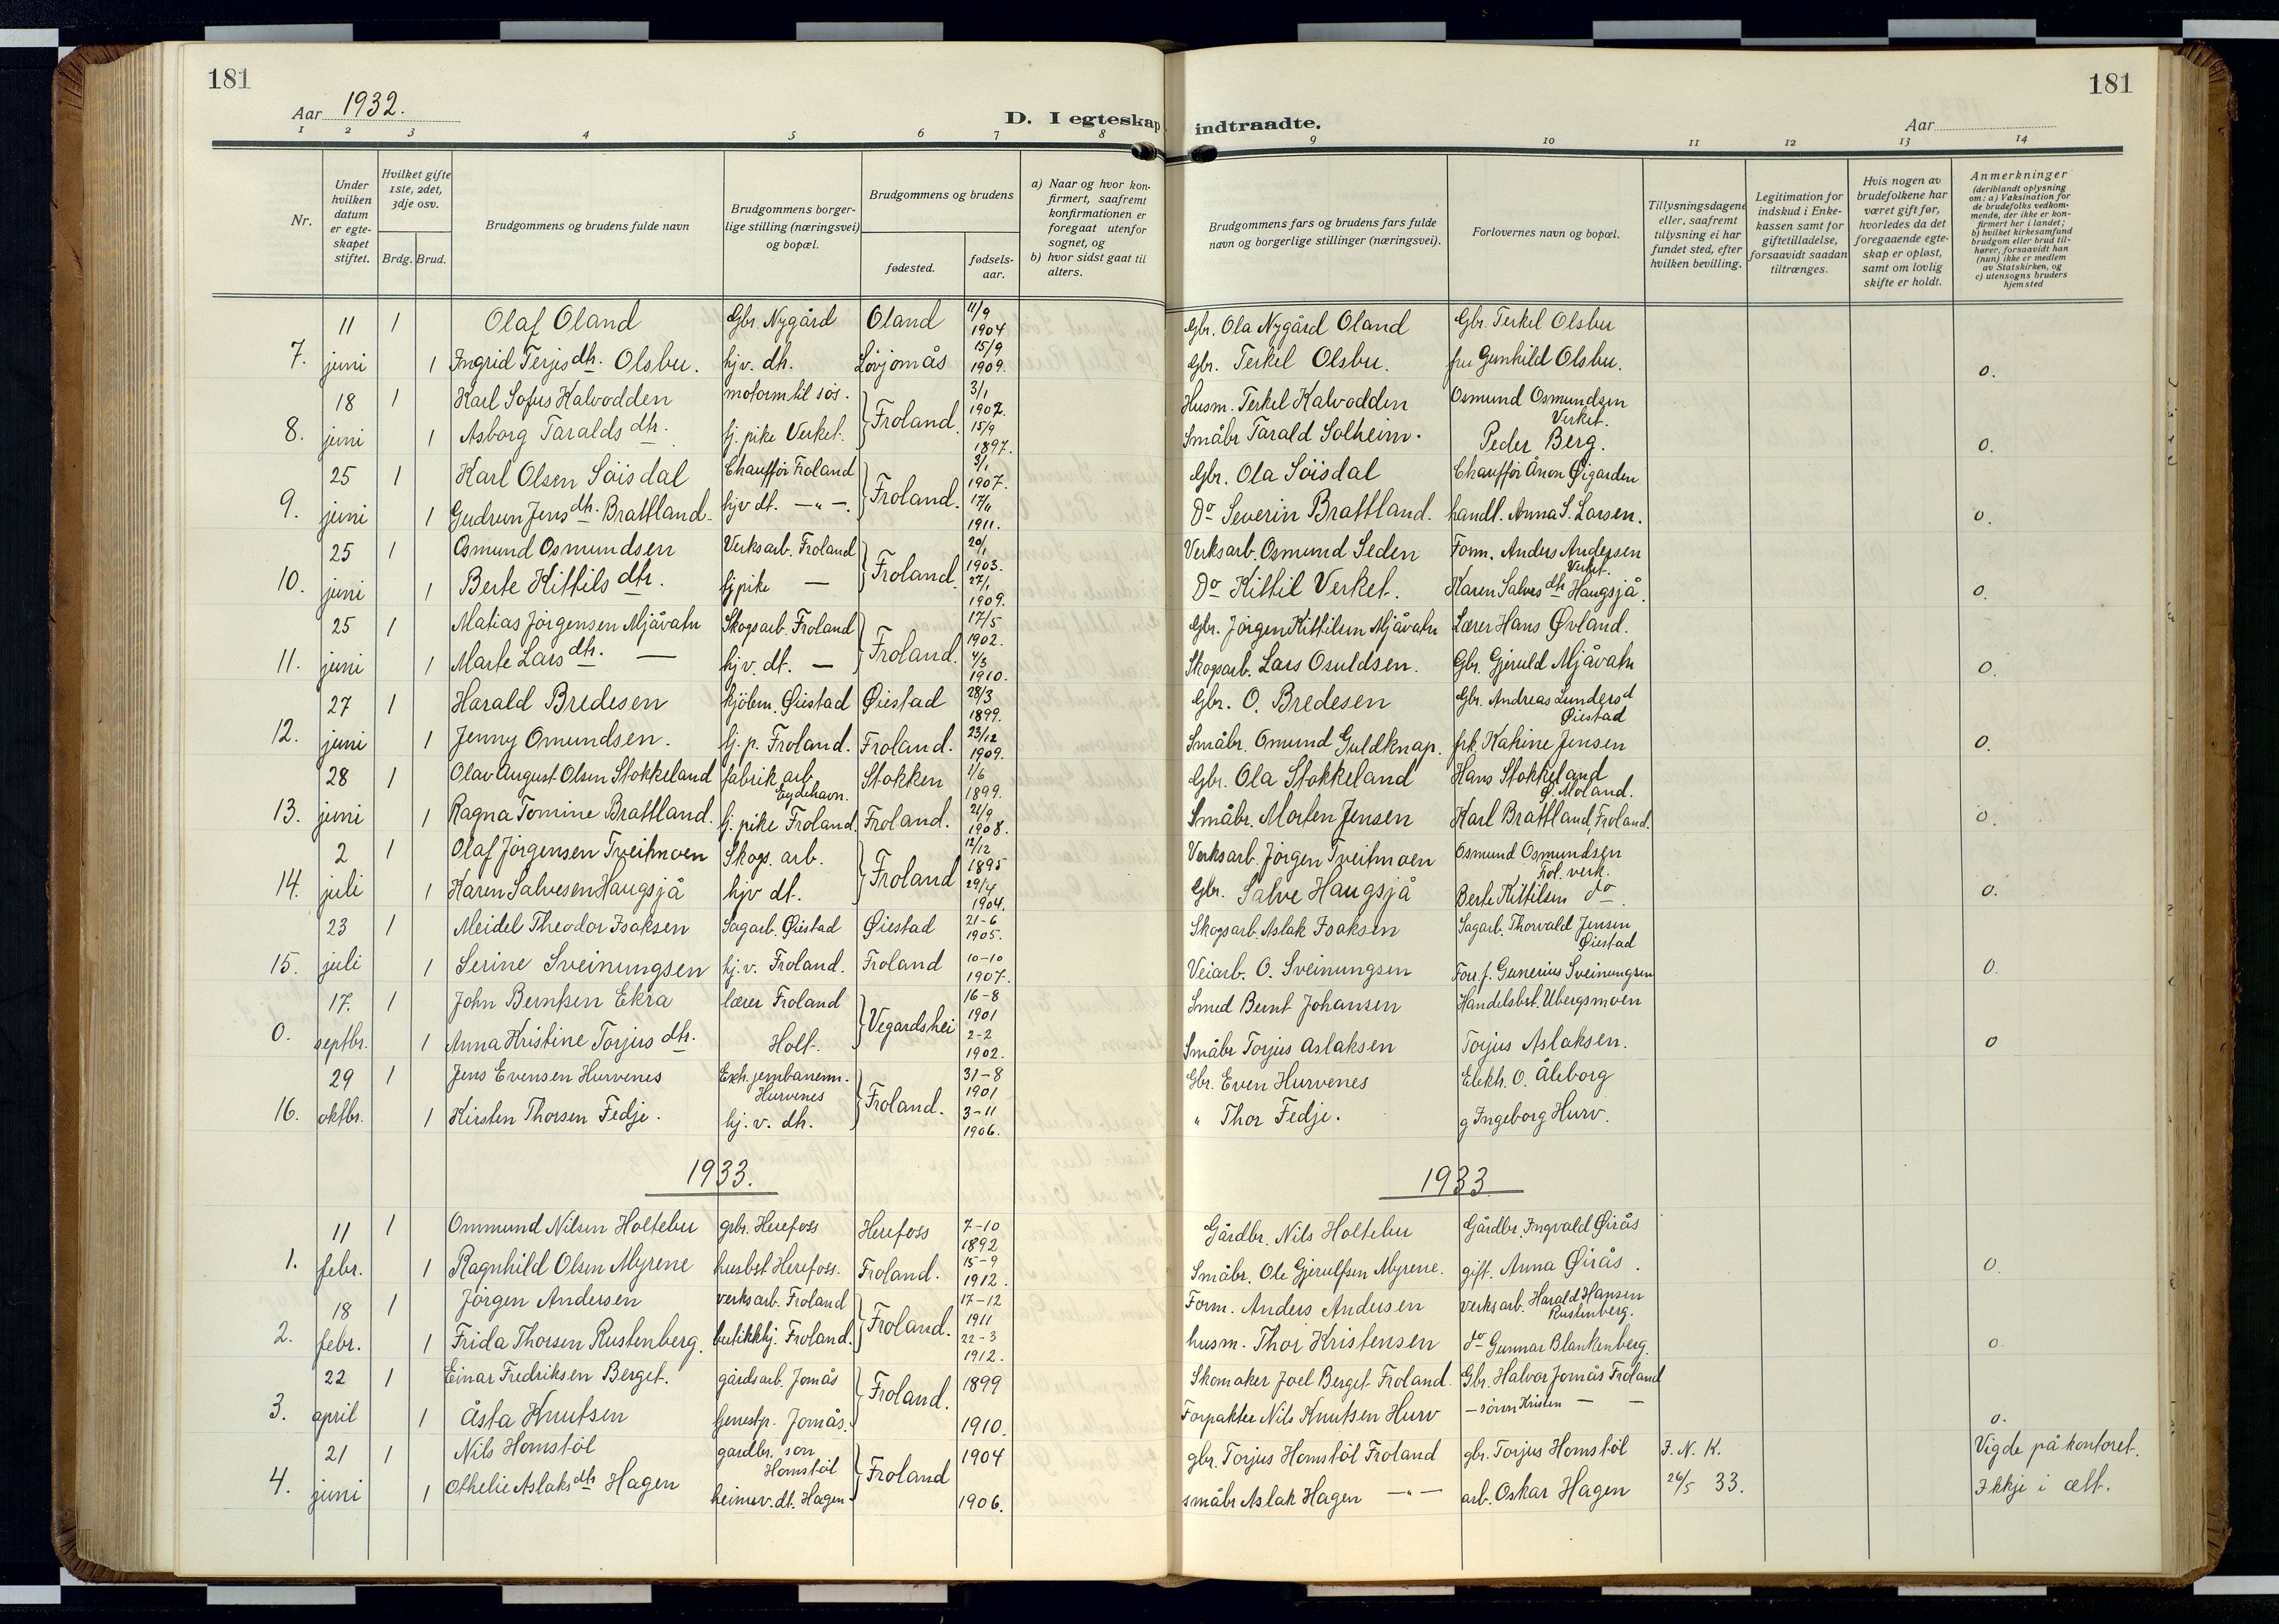 181
181
Aar 1932.
D. I egteskap indtraadte.
Aar
1 2 3 4 5 6 7 8 9 10 11 12 13 14
Nr.
Under hvilken datum er egteskapet stiftet.
Hvilket gifte 1ste, 2det, 3dje osv.
Brdg. Brud.
Brudgommens og brudens fulde navn
Brudgommens borgerlige stilling (næringsvei) og bopæl.
Brudgommens og brudens
fødested.
fødselsaar.
a) Naar og hvor konfirmert, saafremt konfirmationen er foregaat utenfor sognet, og
b) hvor sidst gaat til alters.
Brudgommens fars og brudens fars fulde navn og borgerlige stillinger (næringsvei).
Forlovernes navn og bopæl.
Tillysningsdagene eller, saafremt tillysning ei har fundet sted, efter hvilken bevilling.
Legitimation for indskud i Enkekassen samt for giftetilladelse, forsaavidt saadan tiltrænges.
Hvis nogen av brudefolkene har været gift før, hvorledes da det foregaaende egteskap er opløst, samt om lovlig skifte er holdt.
Anmerkninger (deriblandt oplysning om: a) Vaksination for de brudefolks vedkommende, der ikke er konfirmert her i landet; b) hvilket kirkesamfund brudgom eller brud tilhører, forsaavidt han (hun) ikke er medlem av Statskirken, og c) utensogns bruders hjemsted
11 1 Olaf Oland Gbr. Nygård Oland 11/9 1904 Gbr. Ola Nygård Oland Gbr. Terkel Olsbu
7. juni 1 Ingrid Terjes dtr. Olsbu. hjv. dt. Lövjomås 15/9 1909. Gbr. Terkel Olsbu. fru Gunhild Olsbu. 0.
18 1 Karl Sofus Kalvodden motormtil sös. Froland 3/1 1907. Husm. Terkel Kalvodden Osmund Osmundsen Verket.
8. juni 1 Asborg Taralds dtr. tj. pike Verket. 15/9 1897. Småbr Tarald Solheim. Peder Berg. 0.
25 1 Karl Olsen Söisdal Chaufför Froland Froland. 3/1 1907. Gbr. Ola Söisdal Chaufför Ånon Øigarden
9. juni 1 Gudrun Jens dtr. Brattland. hjv dt. -"-. 1911. Do Severin Brattland. handl. Anna S. Larsen. 0.
25 1 Osmund Osmundsen Verksarb. Froland Froland. 20/1 1903. Verksarb. Osmund Seden Form. Anders Andersen Verket.
10. juni 1 Berte Kittils dtr. tj pike — 27/1 1909. Do Kittil Verket. Karen Salves dtr Haugsjå. 0.
25 1 Matias Jörgensen Mjåvatn Skogsarb. Froland Froland. 17/5 1902. Gbr. Jörgen Kittilsen Mjåvatn Lærer Hans Øvland.
11. juni 1 Marte Lars dtr. — hjv. dt. — 4/3 1910. Skogsarb. Lars Osuldsen. Gbr. Gjeruld Mjåvatn 0.
27 1 Harald Bredesen kjölem. Øiestad Øiestad 28/3 1899. Gbr. O. Bredesen Gbr. Andreas Lundersd Øiestad
12. juni 1 Jenny Omundsen. tj. p. Froland. Froland. 23/12 1909. Småbr. Omund Guldknap. frk. Katrine Jensen 0.
28 1 Olav August Olsen Stokkeland fabrik arb Eydehavn. Stokken 1/6 1899. Gbr. Ola Stokkeland Hans Stokkeland Ø. Moland.
13. juni 1 Ragna Tomine Brattland. tj. pike Froland. Froland. 21/9 1908. Småbr. Morten Jensen Karl Brattland, Froland. 0.
2 1 Olaf Jörgensen Tveitmoen Skogs. arb. Froland 12/12 1895 Verksarb. Jörgen Tveitmoen Osmund Osmundsen Frol. verk.
14. juli 1 Karen Salvesen Haugsjå hjv dt. 29/4 1904. Gbr. Salve Haugsjå Berte Kittilsen do. 0.
23 1 Meidel Theodor Isaksen Sagarb. Øiestad Øiestad 21-6 1905. Skogsarb. Aslak Isaksen Sagarb. Thorvald Jensen Øiestad
15. juli 1 Serine Sveinungsen hj. v. Froland. Froland 10-10 1907. Veiarb. O. Sveinungsen Forr f. Gunerius Sveinungsen 0.
17. 1 John Berntsen Ekra lærer Froland Vegardshei 16-8 1901 Smed Bernt Johansen Handelsbst. Ubergsmoen
0. septbr. 1 Anna Kristine Torjus dtr. Holt. 2-2 1902. Småbr Torjus Aslaksen Torjus Aslaksen. 0
29 1 Jens Evensen Hurvenes Exh. jernbanem. Hurvenes Froland. 31-8 1901 Gbr. Even Hurvenes Elekh. O. Åleborg
16. oktbr. 1 Kirsten Thorsen Fedje. hj. v. dtr. 3-11 1906. " Thor Fedje. g Ingeborg Hurv.
1933. 1933.
11 1 Ommund Nilsen Holtebu grbr. Herefoss Herefoss 7-10 1892 Gårdbr. Nils Holtebu Gårdbr. Ingvald Øirås
1. febr. 1 Ragnhild Olsen Myrene husbst Herefoss. Froland. 15-9 1912. Småbr. Ole Gjerulfsen Myrene. gift. Anna Øirås. 0.
18 1 Jörgen Andersen verksarb. Froland Froland. 17-12 1911 Form. Anders Andersen verksarb. Harald Hansen Rustenberg.
2. febr. 1 Frida Thorsen Rustenberg. butikkhj. Froland. 22-3 1912. husm. Thor Kristensen do Gunnar Blankenberg. 0.
22 1 Einar Fredriksen Berget. gårdsarb. Jomås Froland. 1899 Skomaker Joel Berget Froland. Gbr. Halvor Jomås Froland
3. april 1 Åsta Knutsen tjenestp. Jomås. 1910. Forpakter Nils Knutsen Hurv — sönn Kristen — — 0.
21 1 Nils Homstöl gardbr. son Homstöl Froland 1904 gbr. Torjus Homstöl Froland gbr. Torjus Homstöl J. N. K. Vigde på kontoret.
4. juni 1 Othelie Aslaks dtr Hagen heimev. dt. Hagen 1906. småbr Aslak Hagen -"- arb. Oskar Hagen 26/5 33. Ikkje i ætt.